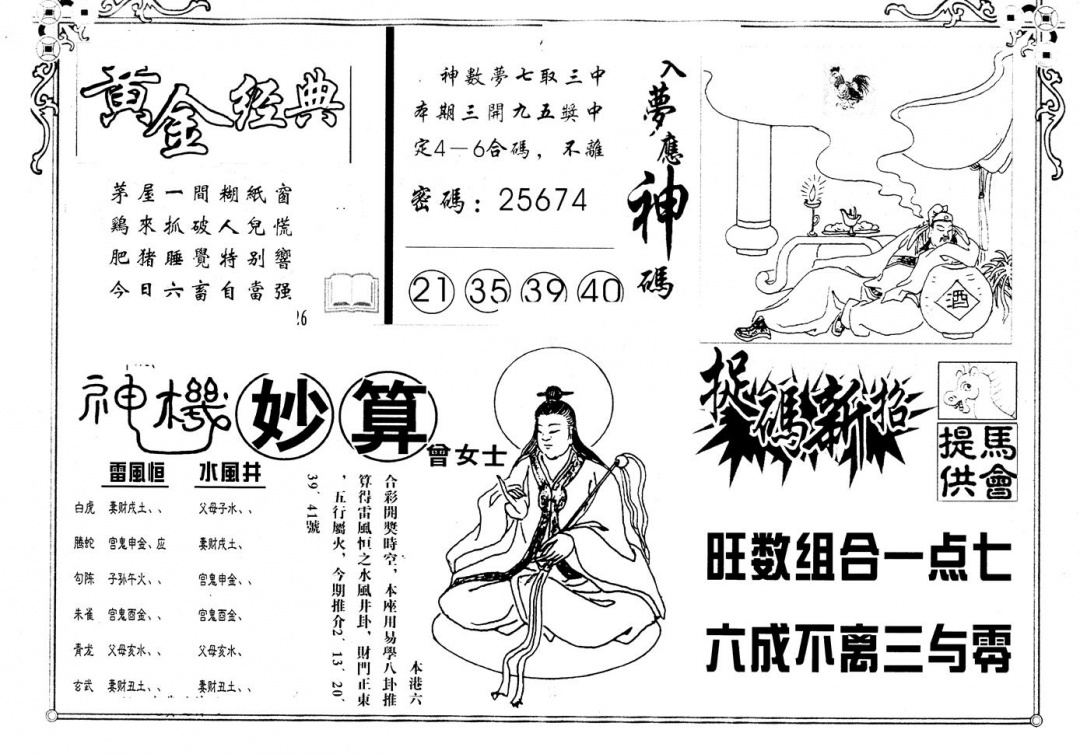 黃金經典
茅屋一間糊紙窗
鷄來抓破人兒慌
肥猪睡覺特别響
今日六畜自當强
26
神數夢七取三中
本期三開九五獎中
定4—6合碼，不離
密碼：25674
21 35 39 40
入夢應神碼
酒
神機妙算
曾女士
雷風恒 水風井
白虎 妻財戌土、、 父母子水、、
騰蛇 官鬼申金、应 妻財戌土、
勾陈 子孙午火、、 官鬼申金、、
朱雀 官鬼酉金、、 官鬼酉金、
青龙 父母亥水、、 父母亥水、
玄武 妻財丑土、、 妻財丑土、、
本港六
合彩開獎時空，本座用易學八卦推
算得雷風恒之水風井卦，財門正東
，五行屬火，今期推介2、13、20、
39、41號
捉碼新招
馬會提供
旺数组合一点七
六成不离三与零